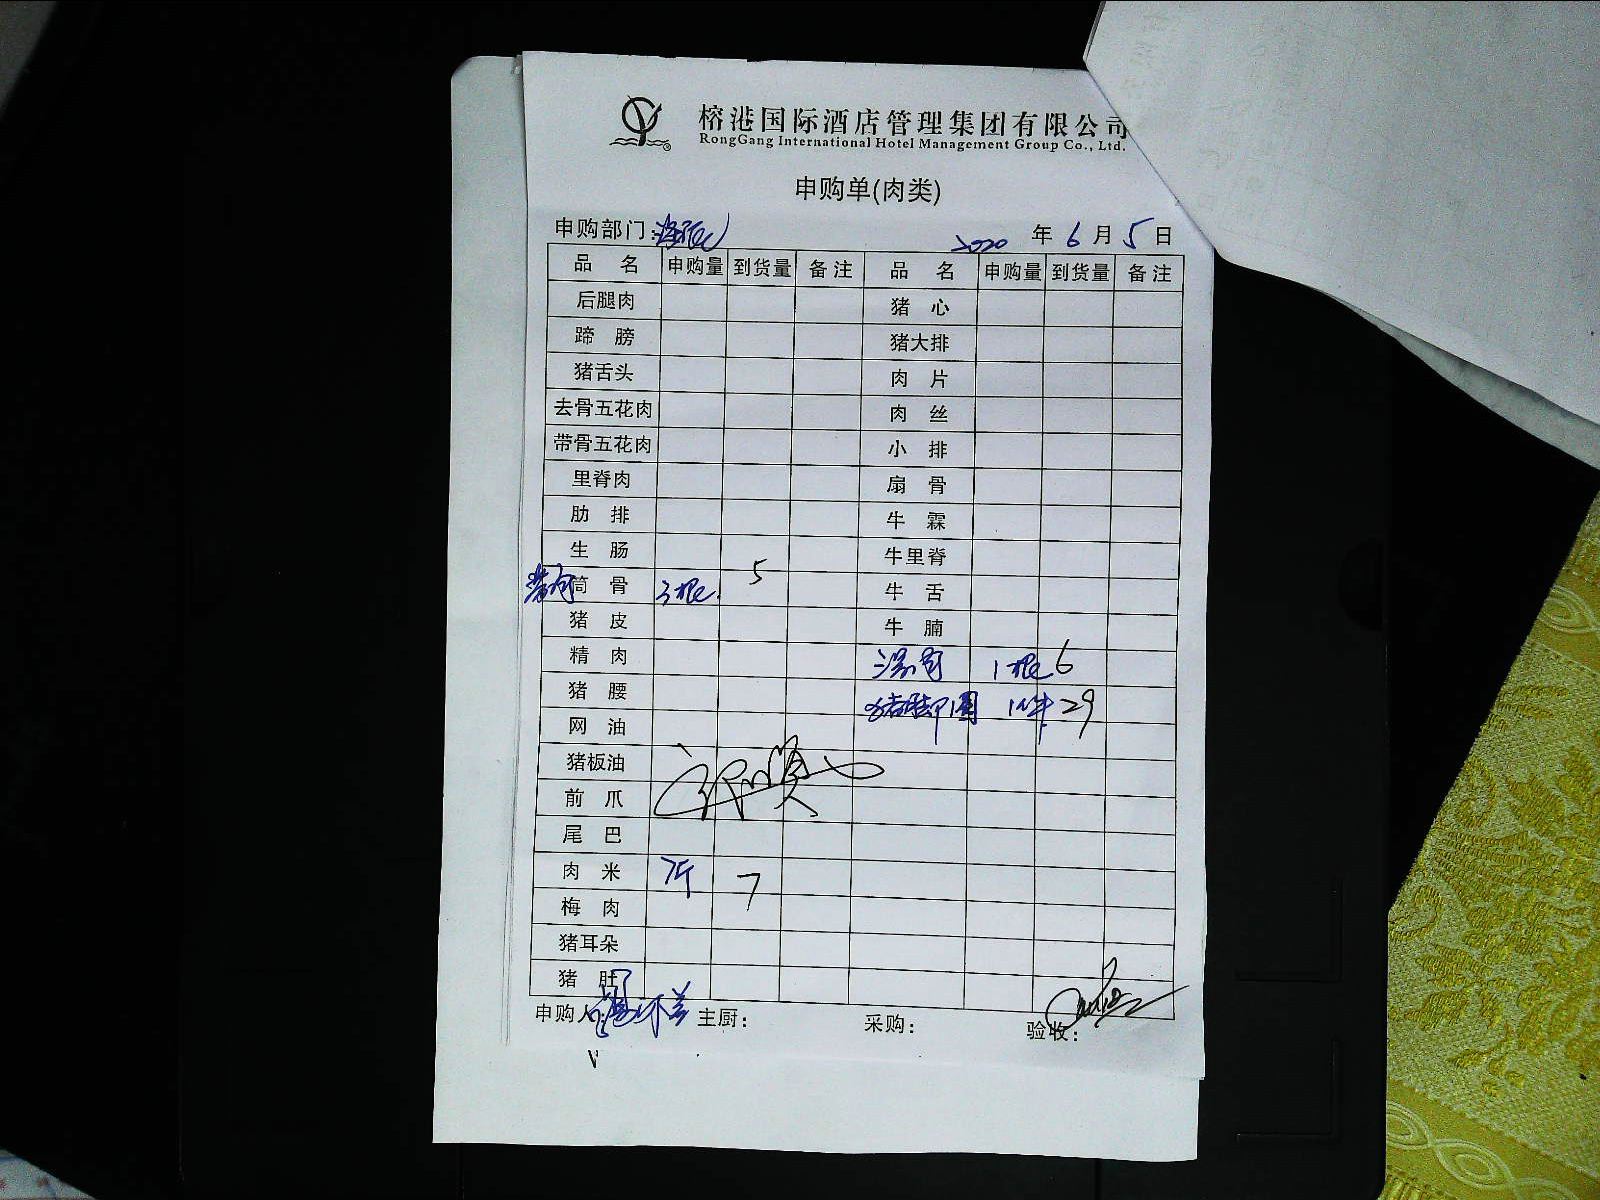 榕港国际酒店管理集团有限公司
RongGang International Hotel Management Group Co., Ltd.
申购单(肉类)
申购部门: 2020 年 6 月 5 日
品 名 申购量 到货量 备注 品 名 申购量 到货量 备注
后腿肉 猪 心
蹄 膀 猪大排
猪舌头 肉 片
去骨五花肉 肉 丝
带骨五花肉 小 排
里脊肉 扇 骨
肋 排 牛 霖
生 肠 牛里脊
筒 骨 3根 5 牛 舌
猪 皮 牛 腩
精 肉 1根 6
猪 腰 29
网 油
猪板油
前 爪
尾 巴
肉 米 7斤 7
梅 肉
猪耳朵
猪 肚
申购人: 主厨: 采购: 验收: